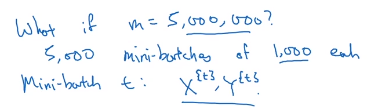 What if m = 5,000,000?
5,000 mini-batches of 1,000 each
Mini-batch t: X^{t}, Y^{t}